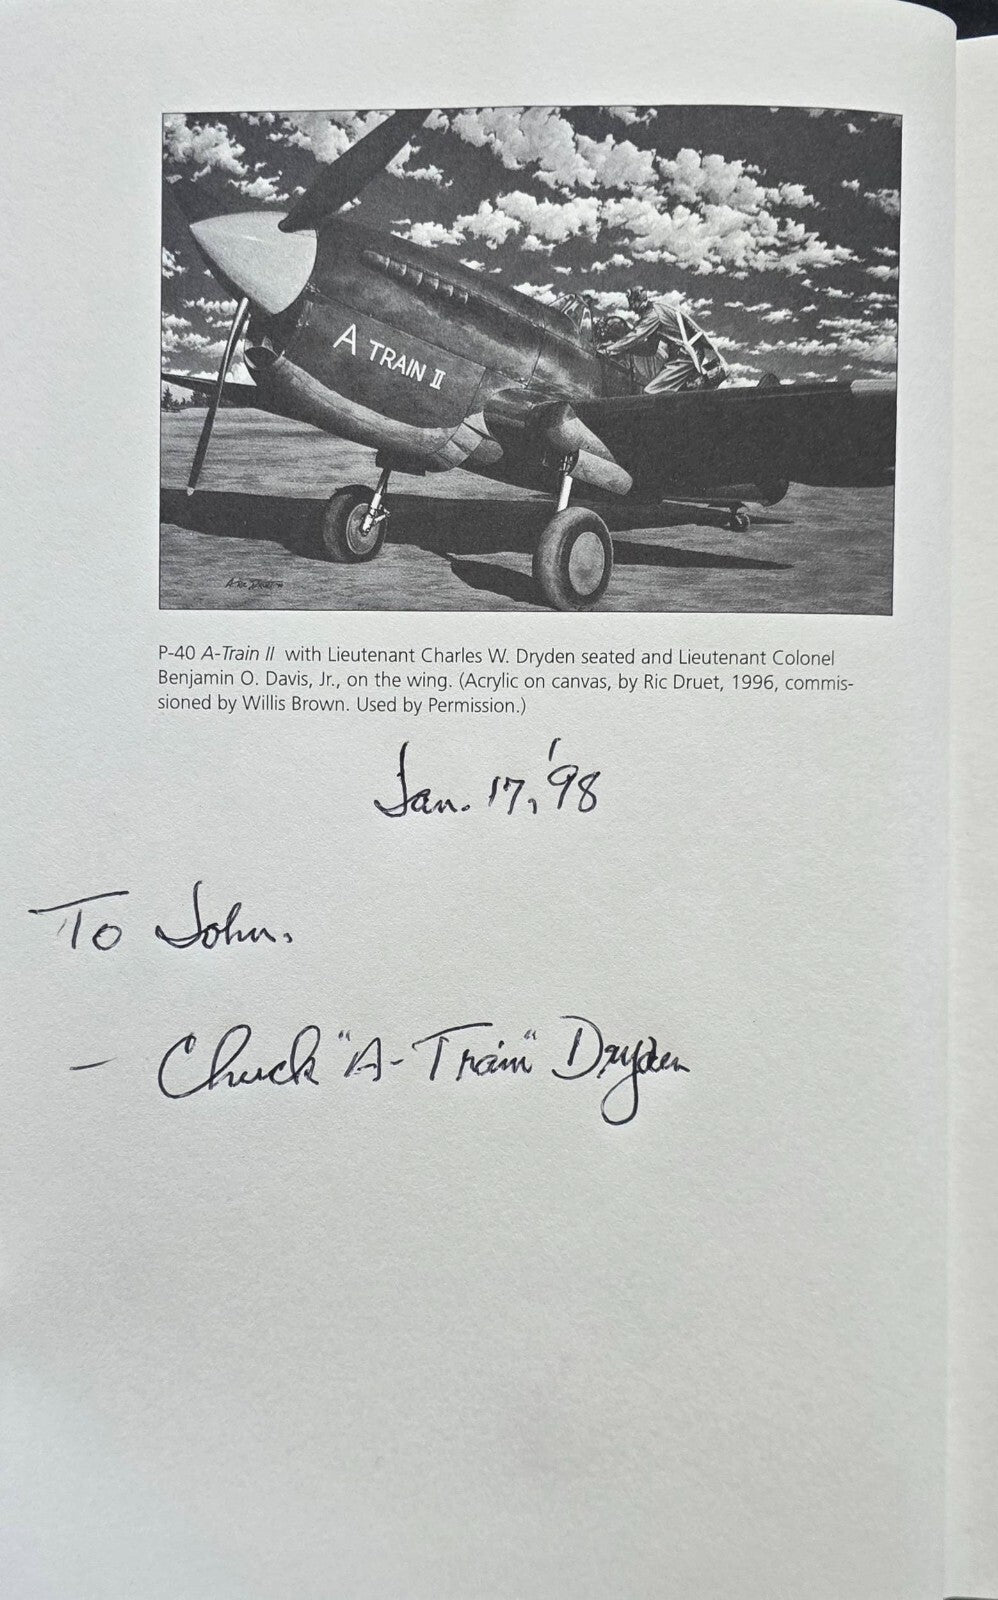 A TRAIN II
A. Ric Druet 96
P-40 A-Train II with Lieutenant Charles W. Dryden seated and Lieutenant Colonel
Benjamin O. Davis, Jr., on the wing. (Acrylic on canvas, by Ric Druet, 1996, commis-
sioned by Willis Brown. Used by Permission.)
Jan. 17, '98
To John.
- Chuck "A-Train" Dryden